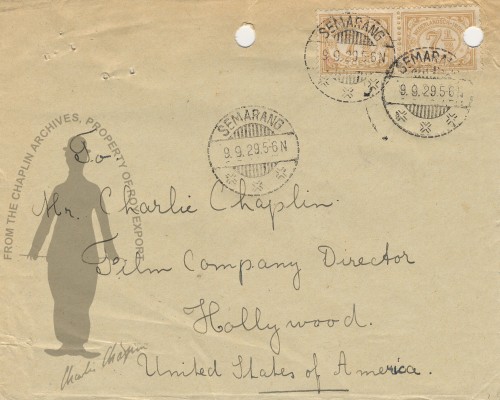 SEMARANG
9.9.29.5-6N
SEMARANG
9.9.29.5-6N
7½
SEMARANG
9.9.29.5-6N
FROM THE CHAPLIN ARCHIVES, PROPERTY OF ROY EXPORT
To.
Mr. Charlie Chaplin.
Film Company Director
Hollywood.
United States of America.
Charlie Chaplin